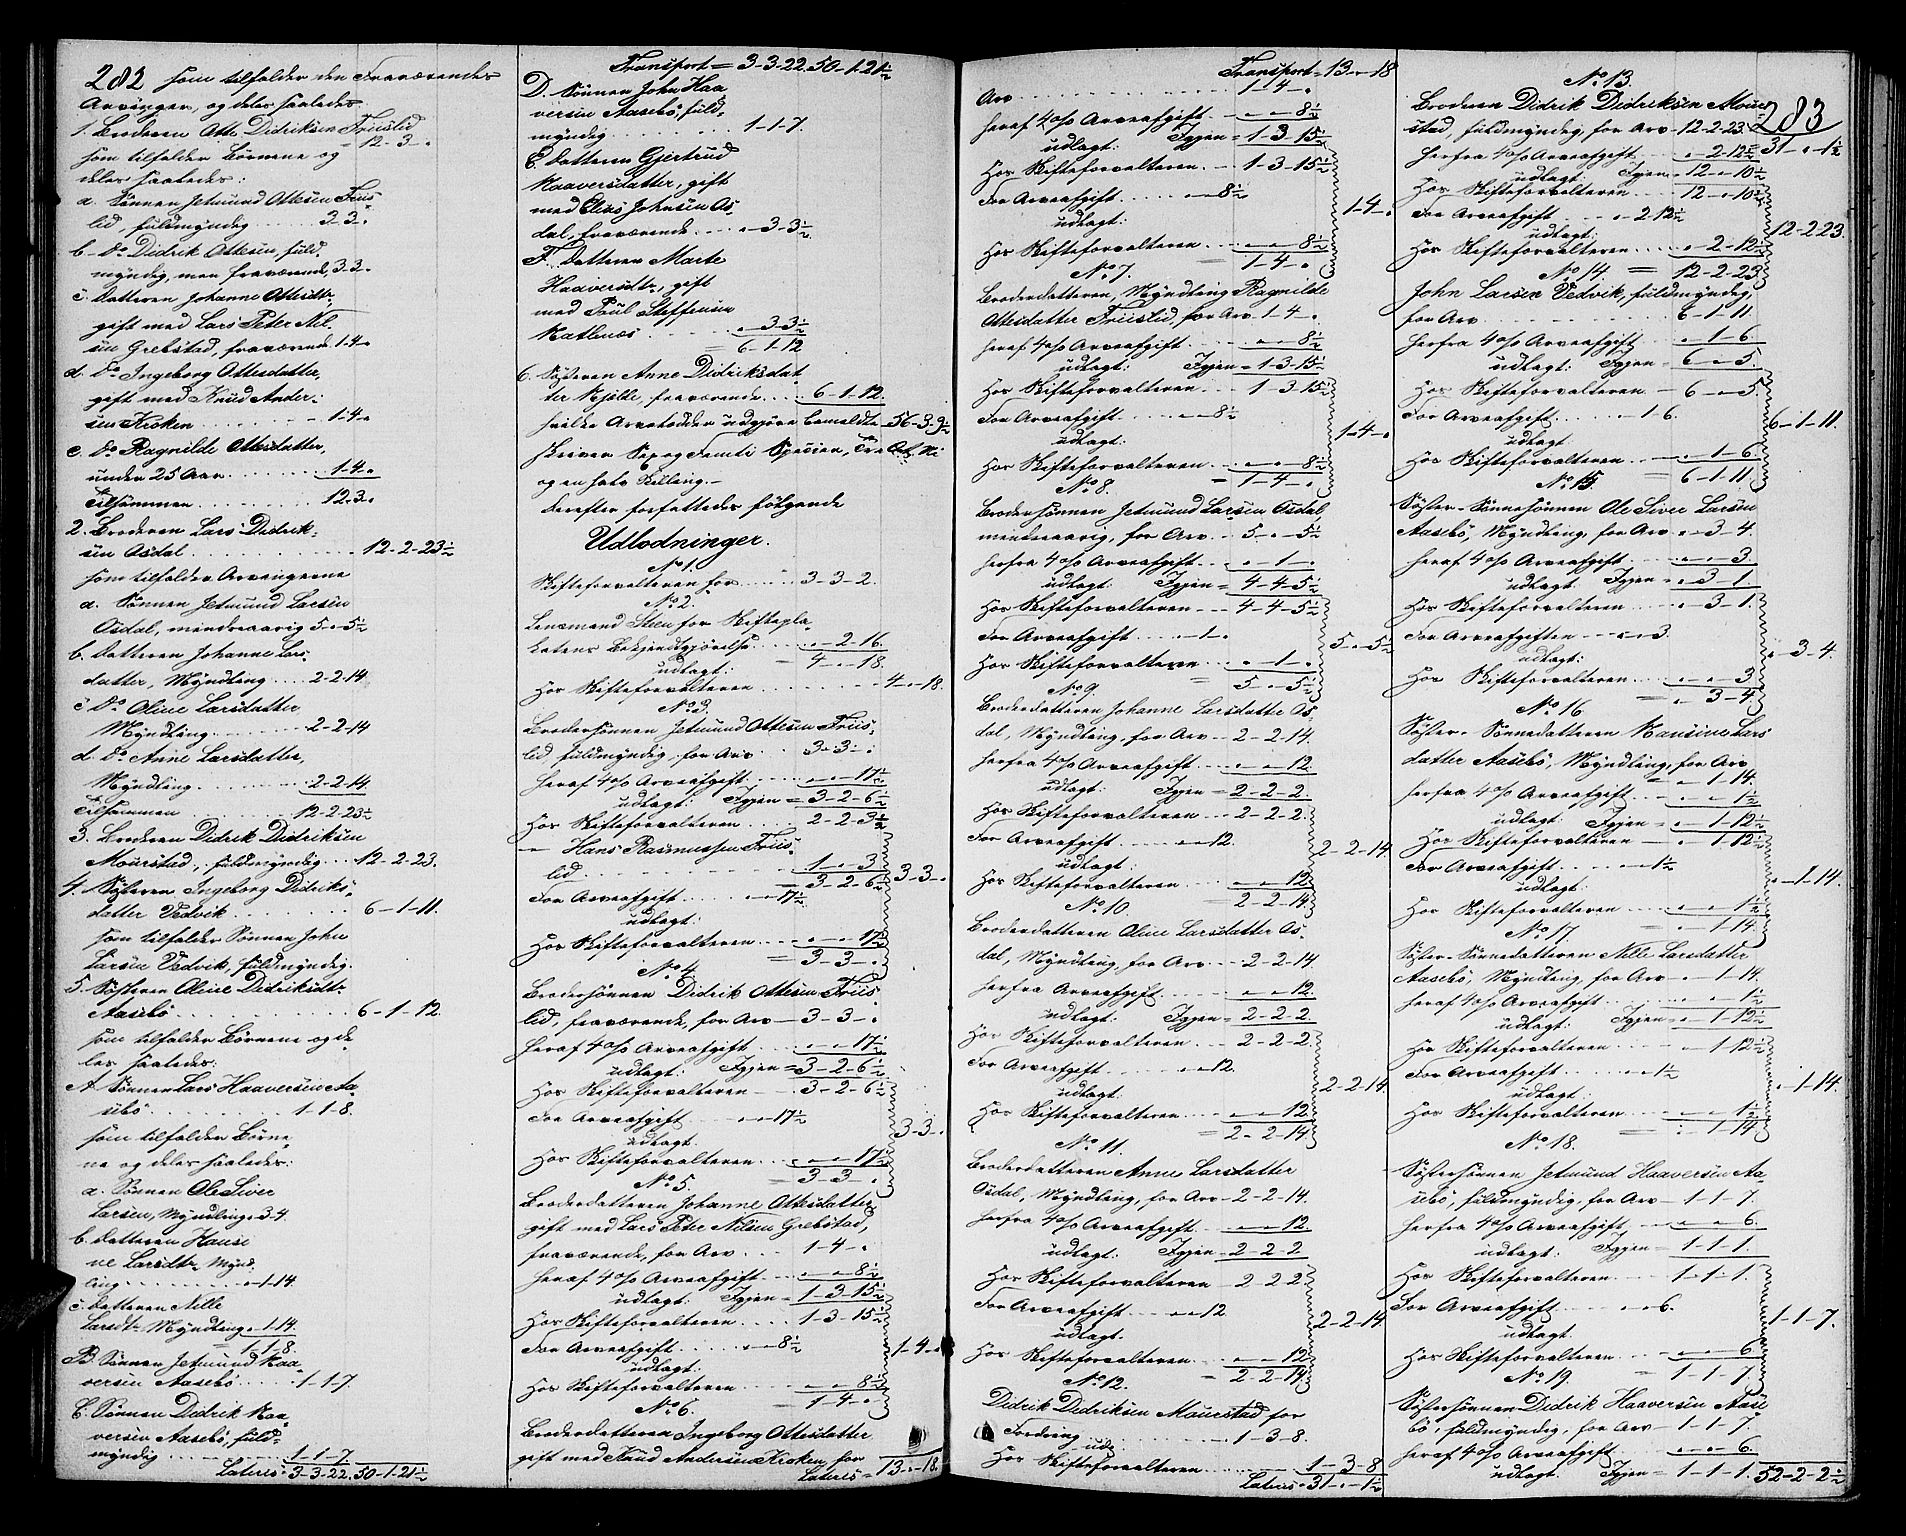 282 som tilfalder den Fraværendes
Arvinger, og deles saaledes:
1. Broderen Otte Didriksen Friislid
12-3-"
som tilfalder Børnene og
deles saaledes:
a. Sønnen Jetmund Ottesen Friis-
lid, fuldmyndig 3-3-"
b. Do Didrik Ottesen, fuld-
myndig, men fraværende, 3-3-"
c. Datteren Johanne Ottesdtr,
gift med Lars Peter Nil-
sen Grebstad, fraværende 1-4-"
d. Do Ingeborg Ottesdatter,
gift med Knud Ander-
sen Kroken 1-4-"
e. Do Ragnilde Ottesdatter,
under 25 Aar 1-4-"
Tilsammen 12-3-"
2. Broderen Lars Didrik-
sen Osdal 12-2-23½
som tilfalder Arvingerne
a. Sønnen Jetmund Larsen
Osdal, mindreaarig 5-"-5½
b. Datteren Johanne Lars-
datter, Myndling 2-2-14
c. Do Oline Larsdatter
Myndling 2-2-14
d. Do Anne Larsdatter,
Myndling 2-2-14
Tilsammen 12-2-23½
3. Broderen Didrik Didriksen
Mourstad, fuldmyndig 12-2-23.
4. Søsteren Ingeborg Didriks-
datter Vedvik 6-1-11.
som tilfalder Sønnen John
Larsen Vedvik, fuldmyndig.
5. Søsteren Oline Didriksdtr
Aasebø 6-1-12
som tilfalder Børnene og de-
les saaledes:
A. Sønnen Lars Haaversen Aa-
sebø 1-1-8.
som tilfalder Børne-
ne og deles saaledes:
a. Sønnen Ole Siver
Larsen, Myndling "-3-4
b. Datteren Hansi-
ne Larsdtr Mynd-
ling "-1-14.
c. Datteren Nille
Larsdtr Myndling "-1-14.
= 1-1-8.
B. Sønnen Jetmund Haa-
versen Aasebø 1-1-7
C. Sønnen Didrik Haa-
versen Aasebø, fuld-
myndig 1-1-7
Lateris 3-3-22. 50-1-21½
Transport = 3-3-22. 50-1-21½
D. Sønnen John Haa-
versen Aasebø, fuld-
myndig 1-1-7.
E. Datteren Gjertrud
Haaversdatter, gift
med Elias Johnsen Os-
dal, fraværende "-3-3½
F. Datteren Marte
Haaversdtr, gift
med Paul Steffensen
Katlenæs "-3-3½
= 6-1-12
6. Søsteren Anne Didriksdat-
ter Kjølle, fraværende 6-1-12.
hvilke Arvelodder udgjøre bemeldte 56-3-9½
skriver Sex og Femti Species, Tre Ort, Ni
og en halv Skilling.-
Derefter forfattedes følgende
Udlodninger.
No 1.
Skifteforvalteren for 3-3-2.
No 2.
Lensmand Steen for Skiftepla-
katens Bekjendtgjørelse "-2-16.
udlagt: = 4-"-18.
Hos Skifteforvalteren 4-"-18.
No 3.
Brodersønnen Jetmund Ottesen Friis-
lid, fuldmyndig, for Arv 3-3-"
heraf 4 o/o Arveafgift "-"-17½
udlagt: Igjen = 3-2-6½
Hos Skifteforvalteren 2-2-3½
— Hans Rasmussen Friis-
lid 1-"-3
= 3-2-6½ 3-3-"
For Arveafgift "-"-17½
udlagt:
Hos Skifteforvalteren "-"-17½
= 3-3-"
No 4.
Brodersønnen Didrik Ottesen Friis-
lid, fraværende, for Arv 3-3-"
heraf 4 o/o Arveafgift "-"-17½
udlagt: Igjen = 3-2-6½
Hos Skifteforvalteren 3-2-6½
For Arveafgift "-"-17½ 3-3-"
udlagt.
Hos Skifteforvalteren "-"-17½
= 3-3-"
No 5.
Broderdatteren Johanne Ottesdatter
gift med Lars Peter Nilsen Grebstad,
fraværende, for Arv 1-4-"
heraf 4 o/o Arveafgift "-"-8½
udlagt: Igjen = 1-3-15½
Hos Skifteforvalteren 1-3-15½
For Arveafgift "-"-8½ 1-4-"
udlagt:
Hos Skifteforvalteren "-"-8½
1-4-"
No 6.
Broderdatteren Ingeborg Ottesdatter
gift med Knud Andersen Kroken, for
Lateris = 13-"-18.
Transport = 13-"-18
Arv 1-4-"
heraf 4 o/o Arveafgift "-"-8½
udlagt: Igjen = 1-3-15½
Hos Skifteforvalteren 1-3-15½
For Arveafgift "-"-8½ 1-4-"
udlagt:
Hos Skifteforvalteren "-"-8½
= 1-4-"
No 7.
Broderdatteren, Myndling Ragnilde
Ottesdatter Friislid, for Arv 1-4-"
heraf 4 o/o Arveafgift "-"-8½
udlagt: Igjen = 1-3-15½
Hos Skifteforvalteren 1-3-15½
For Arveafgift "-"-8½ 1-4-"
udlagt:
Hos Skifteforvalteren "-"-8½
= 1-4-"
No 8.
Brodersønnen Jetmund Larsen Osdal,
mindreaarig, for Arv 5-"-5½
herfra 4 o/o Arveafgift "-1-"
udlagt: Igjen = 4-4-5½
Hos Skifteforvalteren 4-4-5½
For Arveafgift "-1-" 5-"-5½
udlagt:
Hos Skifteforvalteren "-1-"
= 5-"-5½
No 9.
Broderdatteren Johanne Larsdatter Os-
dal, Myndling, for Arv 2-2-14.
herfra 4 o/o Arveafgift "-"-12.
udlagt: Igjen = 2-2-2.
Hos Skifteforvalteren 2-2-2.
For Arveafgift "-"-12. 2-2-14.
udlagt:
Hos Skifteforvalteren "-"-12
= 2-2-14
No 10.
Broderdatteren Oline Larsdatter Os-
dal, Myndling, for Arv 2-2-14.
herfra Arveafgift "-"-12.
udlagt: Igjen = 2-2-2
Hos Skifteforvalteren 2-2-2
For Arveafgift "-"-12. 2-2-14.
udlagt:
Hos Skifteforvalteren "-"-12
= 2-2-14
No 11.
Broderdatteren Anne Larsdatter
Osdal, Myndling, for Arv 2-2-14.
herfra 4 o/o Arveafgift "-"-12.
udlagt: Igjen = 2-2-2
Hos Skifteforvalteren 2-2-2
For Arveafgift "-"-12 2-2-14
udlagt.
Hos Skifteforvalteren "-"-12
= 2-2-14
No 12.
Didrik Didriksen Mourstad for
Fordring 1-3-8.
udl:
Hos Skifteforvalteren 1-3-8
Lateris = 31-"-1½
283
No 13.
Broderen Didrik Didriksen Mour-
stad, fuldmyndig, for Arv 12-2-23. 31-"-1½
herfra 4 o/o Arveafgift "-2-12½
udlagt: Igjen = 12-"-10½
Hos Skifteforvalteren 12-"-10½
For Arveafgift "-2-12½ 12-2-23.
udlagt:
Hos Skifteforvalteren "-2-12½
= 12-2-23
No 14.
John Larsen Vedvik, fuldmyndig,
for Arv 6-1-11
herfra 4 o/o Arveafgift "-1-6
udlagt: Igjen = 6-"-5.
Hos Skifteforvalteren 6-"-5.
For Arveafgift "-1-6. 6-1-11.
udlagt
Hos Skifteforvalteren "-1-6
= 6-1-11
No 15.
Søster-Sønnesønnen Ole Siver Larsen
Aasebø, Myndling, for Arv "-3-4.
heraf 4 o/o Arveafgift "-"-3
udlagt: Igjen = "-3-1
Hos Skifteforvalteren "-3-1.
For Arveafgiften "-"-3. "-3-4.
udlagt:
Hos Skifteforvalteren "-"-3
= "-3-4
No 16.
Søster-Sønnedatteren Hansine Lars-
datter Aasebø, Myndling, for Arv
"-1-14.
herfra 4 o/o Arveafgift "-"-1½
udlagt: Igjen = "-1-12½
Hos Skifteforvalteren "-1-12½
For Arveafgift "-"-1½ "-1-14.
udlagt:
Hos Skifteforvalteren "-"-1½
= "-1-14.
No 17.
Søster-Sønnedatteren Nille Larsdatter
Aasebø, Myndling, for Arv "-1-14.
heraf 4 o/o Arveafgift "-"-1½
udlagt: Igjen = "-1-12½
Hos Skifteforvalteren "-1-12½
For Arveafgift "-"-1½ "-1-14.
udlagt:
Hos Skifteforvalteren "-"-1½
= "-1-14
No 18.
Søstersønnen Jetmund Haaversen Aa-
sebø, fuldmyndig, for Arv 1-1-7.
herfra 4 o/o Arveafgift "-"-6.
udlagt: Igjen = 1-1-1.
Hos Skifteforvalteren 1-1-1.
For Arveafgift "-"-6. 1-1-7.
udlagt.
Hos Skifteforvalteren "-"-6.
= 1-1-7
No 19.
Søstersønnen Didrik Haaversen Aase-
bø, fuldmyndig, for Arv 1-1-7.
heraf 4 o/o Arveafgift "-"-6.
udlagt: Igjen = 1-1-1. 52-2-2½